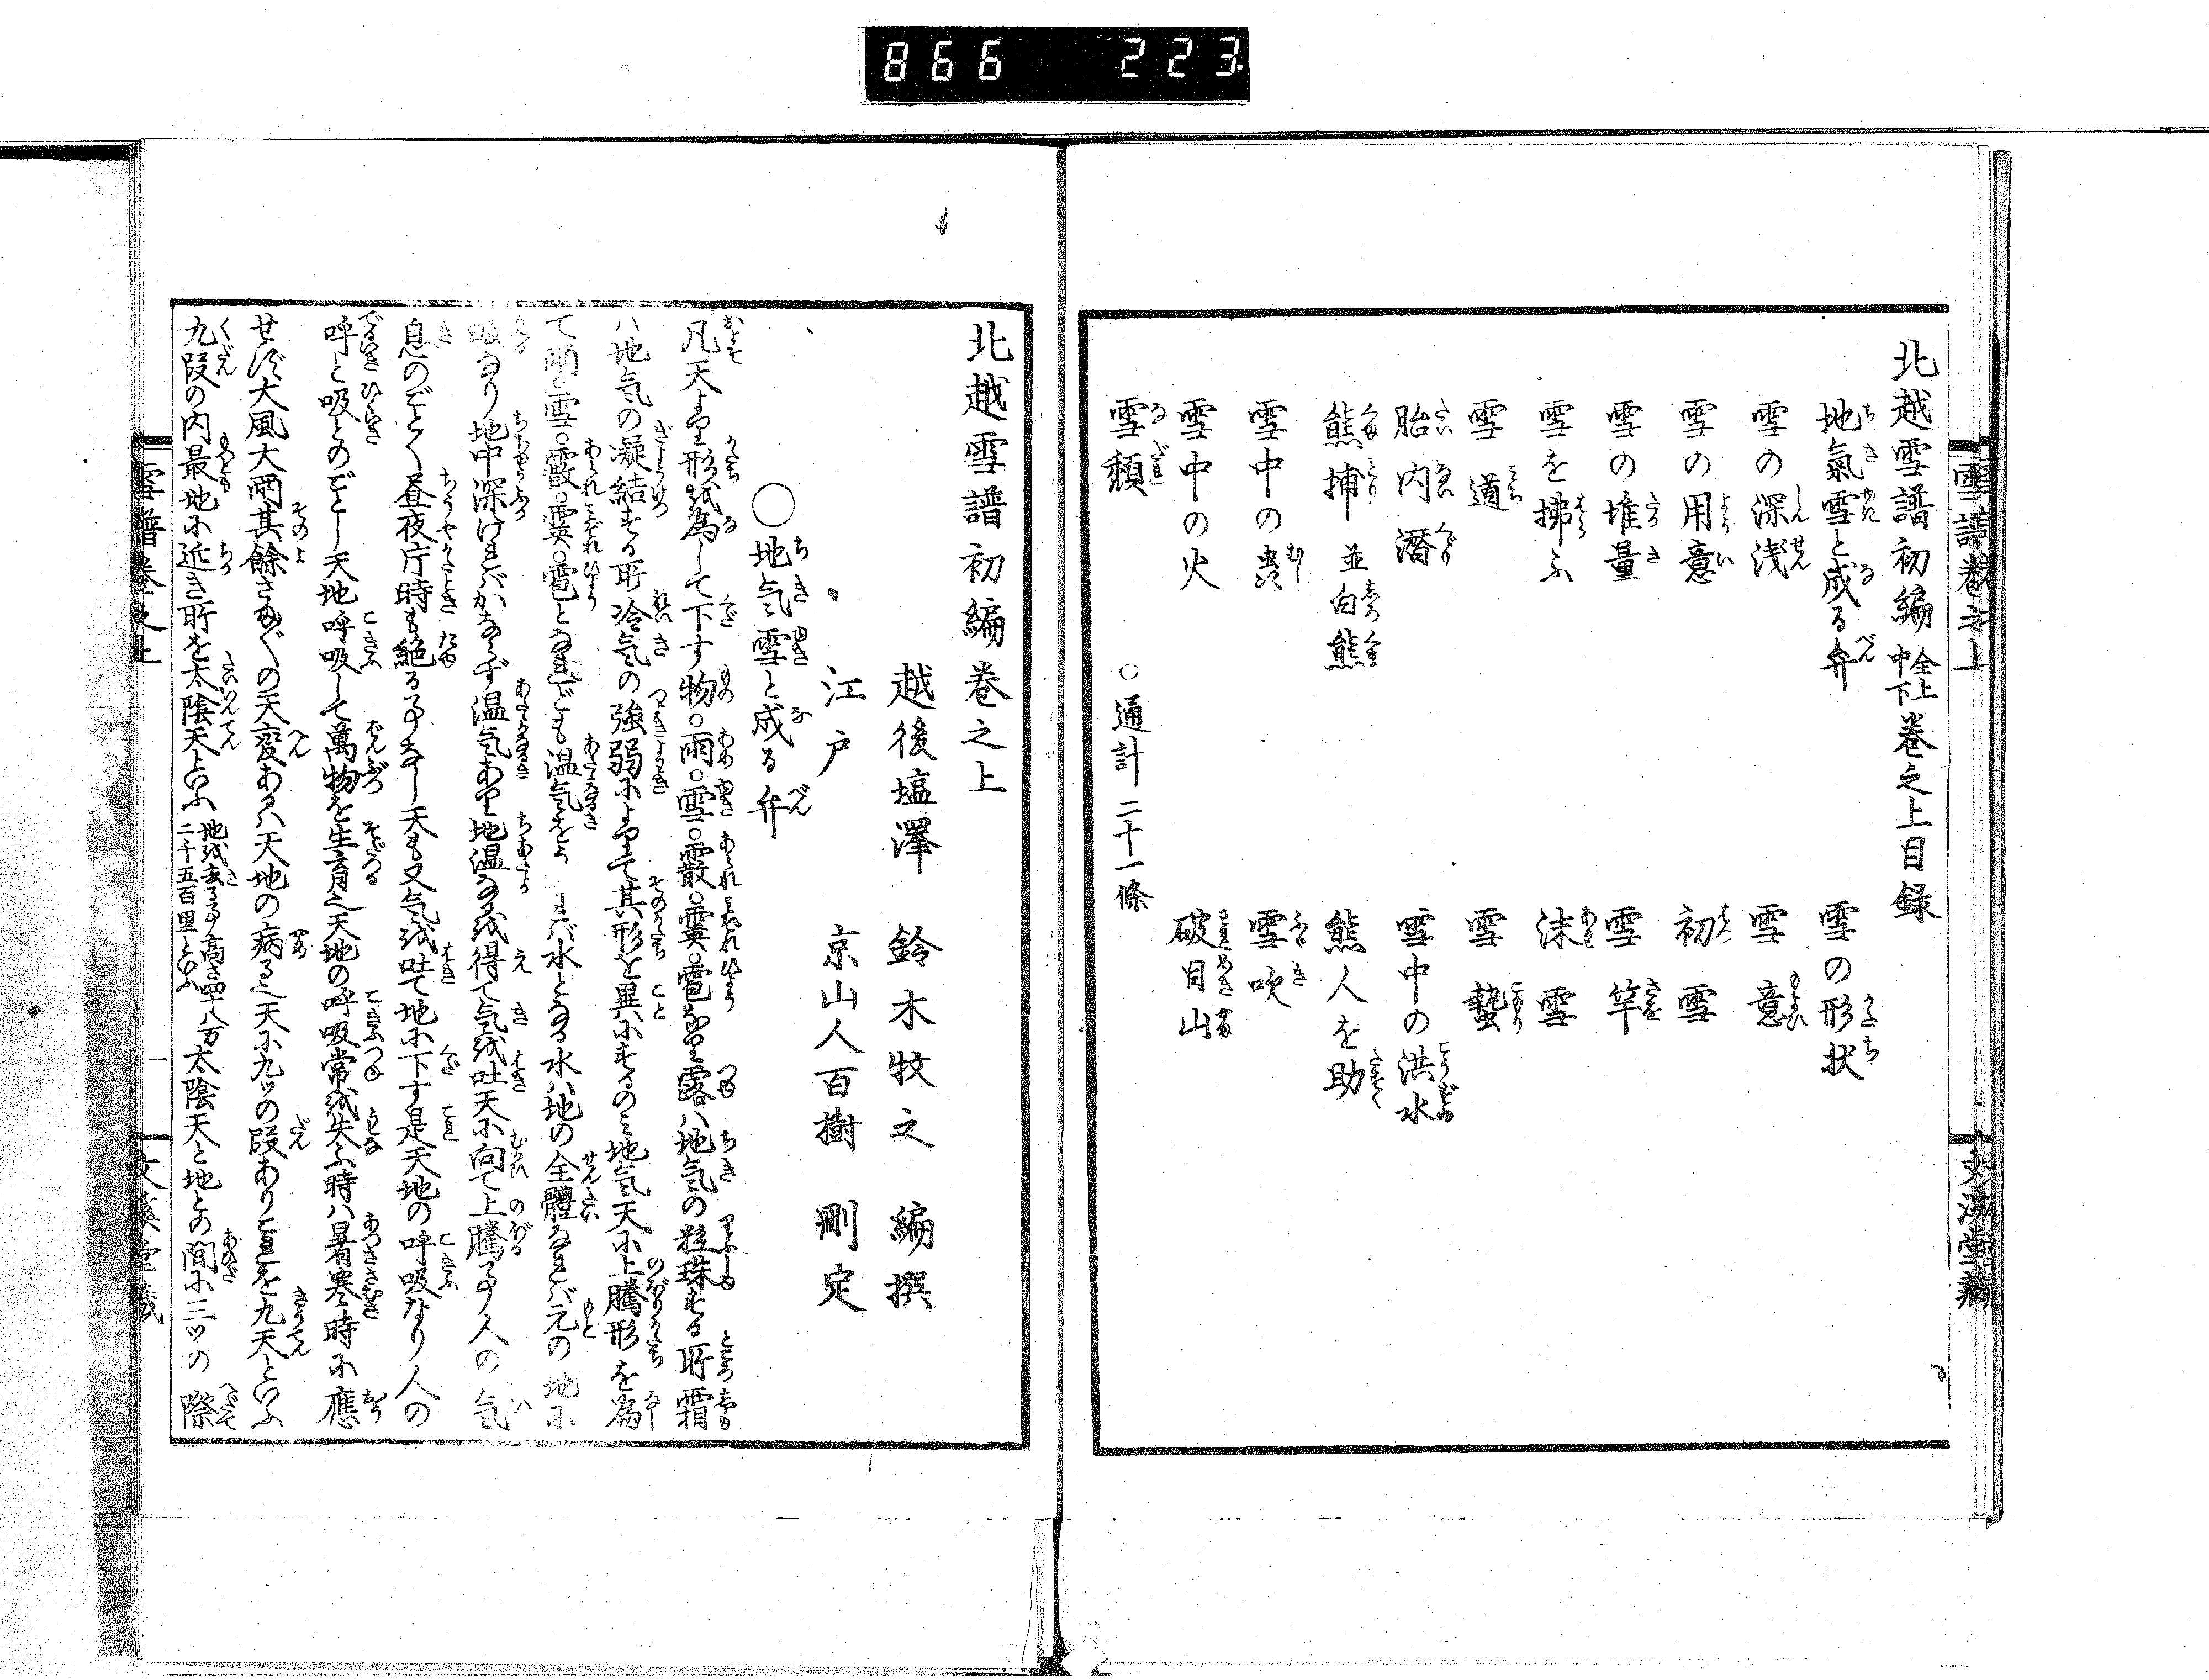 866 223
雪譜巻之上
文溪堂藏
北越雪譜初編 全上中下 巻之上目録
地氣雪と成る弁
雪の形状
雪の深浅
雪意
雪の用意
初雪
雪の堆量
雪竿
雪を掃ふ
沫雪
雪道
雪蟄
胎内潜
雪中の洪水
熊捕 並白熊
熊人を助
雪中の虫
雪吹
雪中の火
破目山
雪頽
○通計二十一條
北越雪譜初編巻之上
越後塩澤 鈴木牧之 編撰
江戸 京山人百樹 刪定
○地气雪と成る弁
凡天より形を為して下す物○雨○雪○霰○霙○雹なり露ハ地气の粒珠する所霜
ハ地气の凝結する所冷气の強弱によりて其形を異にするのミ地气天に上騰形を為
て雨○雪○霰○霙○雹となれども温气をう れバ水となる水ハ地の全體なれバ元の地に
皈なり地中深けれバかならず温气あり地温なるを得て气を吐天に向て上騰る事人の气
息のごとく昼夜片時も絶る事なし天も又气を吐て地に下す是天地の呼吸なり人の
呼と吸とのごとし天地呼吸して萬物を生育也天地の呼吸常を失ふ時ハ暑寒時に應
せず大風大雨其餘さま〲の天変あるハ天地の病る也天に九ツの段ありこれを九天といふ
九段の内最地に近き所を太陰天といふ 地を去る事高さ四十八万二千五百里といふ 太陰天と地との間に三ツの際
雪譜巻之上
一
文溪堂藏